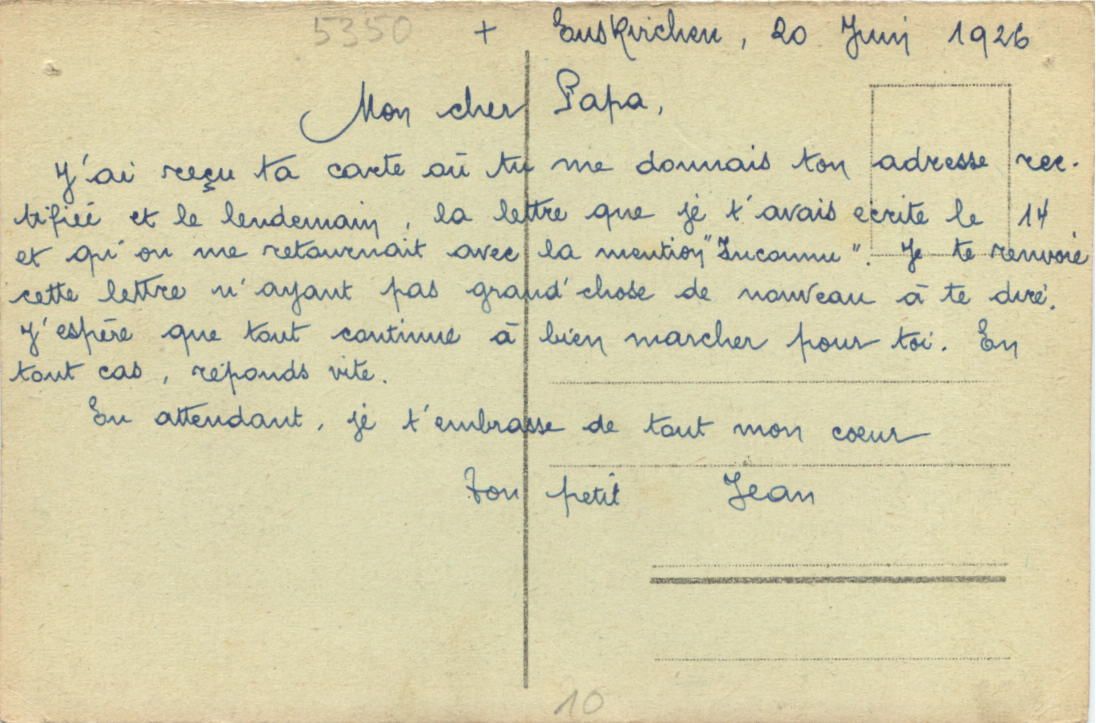 5350 + Euskirchen, 20 Juin 1926
Mon cher Papa,
J'ai reçu ta carte où tu me donnais ton adresse rec-
tifiée et le lendemain, la lettre que je t'avais écrite le 14
et qu'on me retournait avec la mention "Inconnu". Je te renvoie
cette lettre n'ayant pas grand'chose de nouveau à te dire.
J'espère que tout continue à bien marcher pour toi. En
tout cas, réponds vite.
En attendant, je t'embrasse de tout mon coeur
Ton petit Jean
10